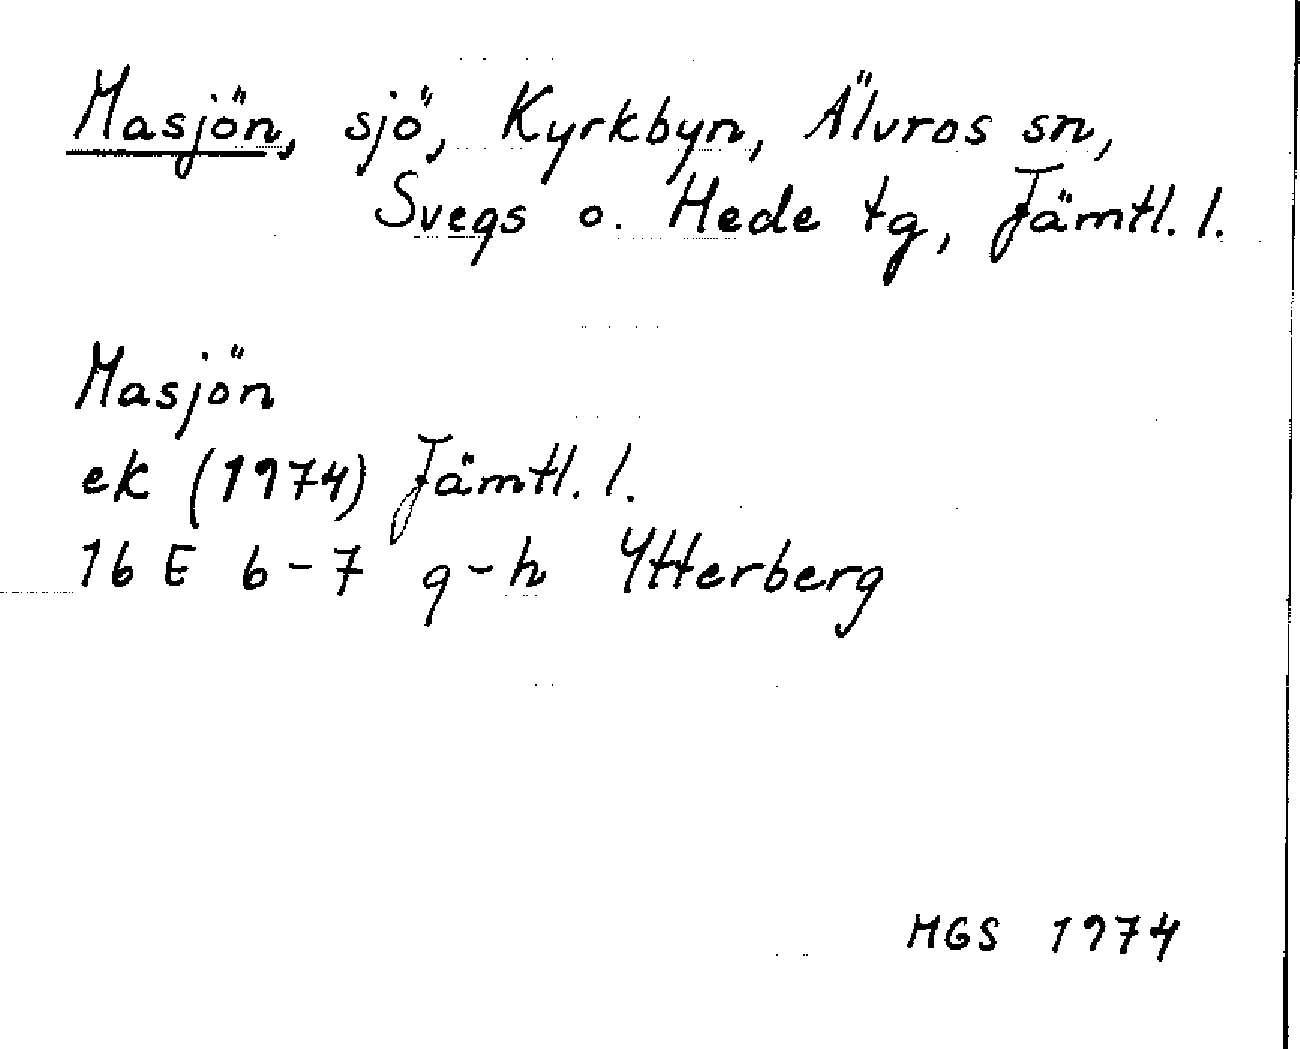 Masjön, sjö, Kyrkbyn, Älvros sn,
Svegs o. Hede tg, Jämtl. l.
Masjön
ek (1974) Jämtl. l.
16 E 6-7 g-h Ytterberg
MGS 1974